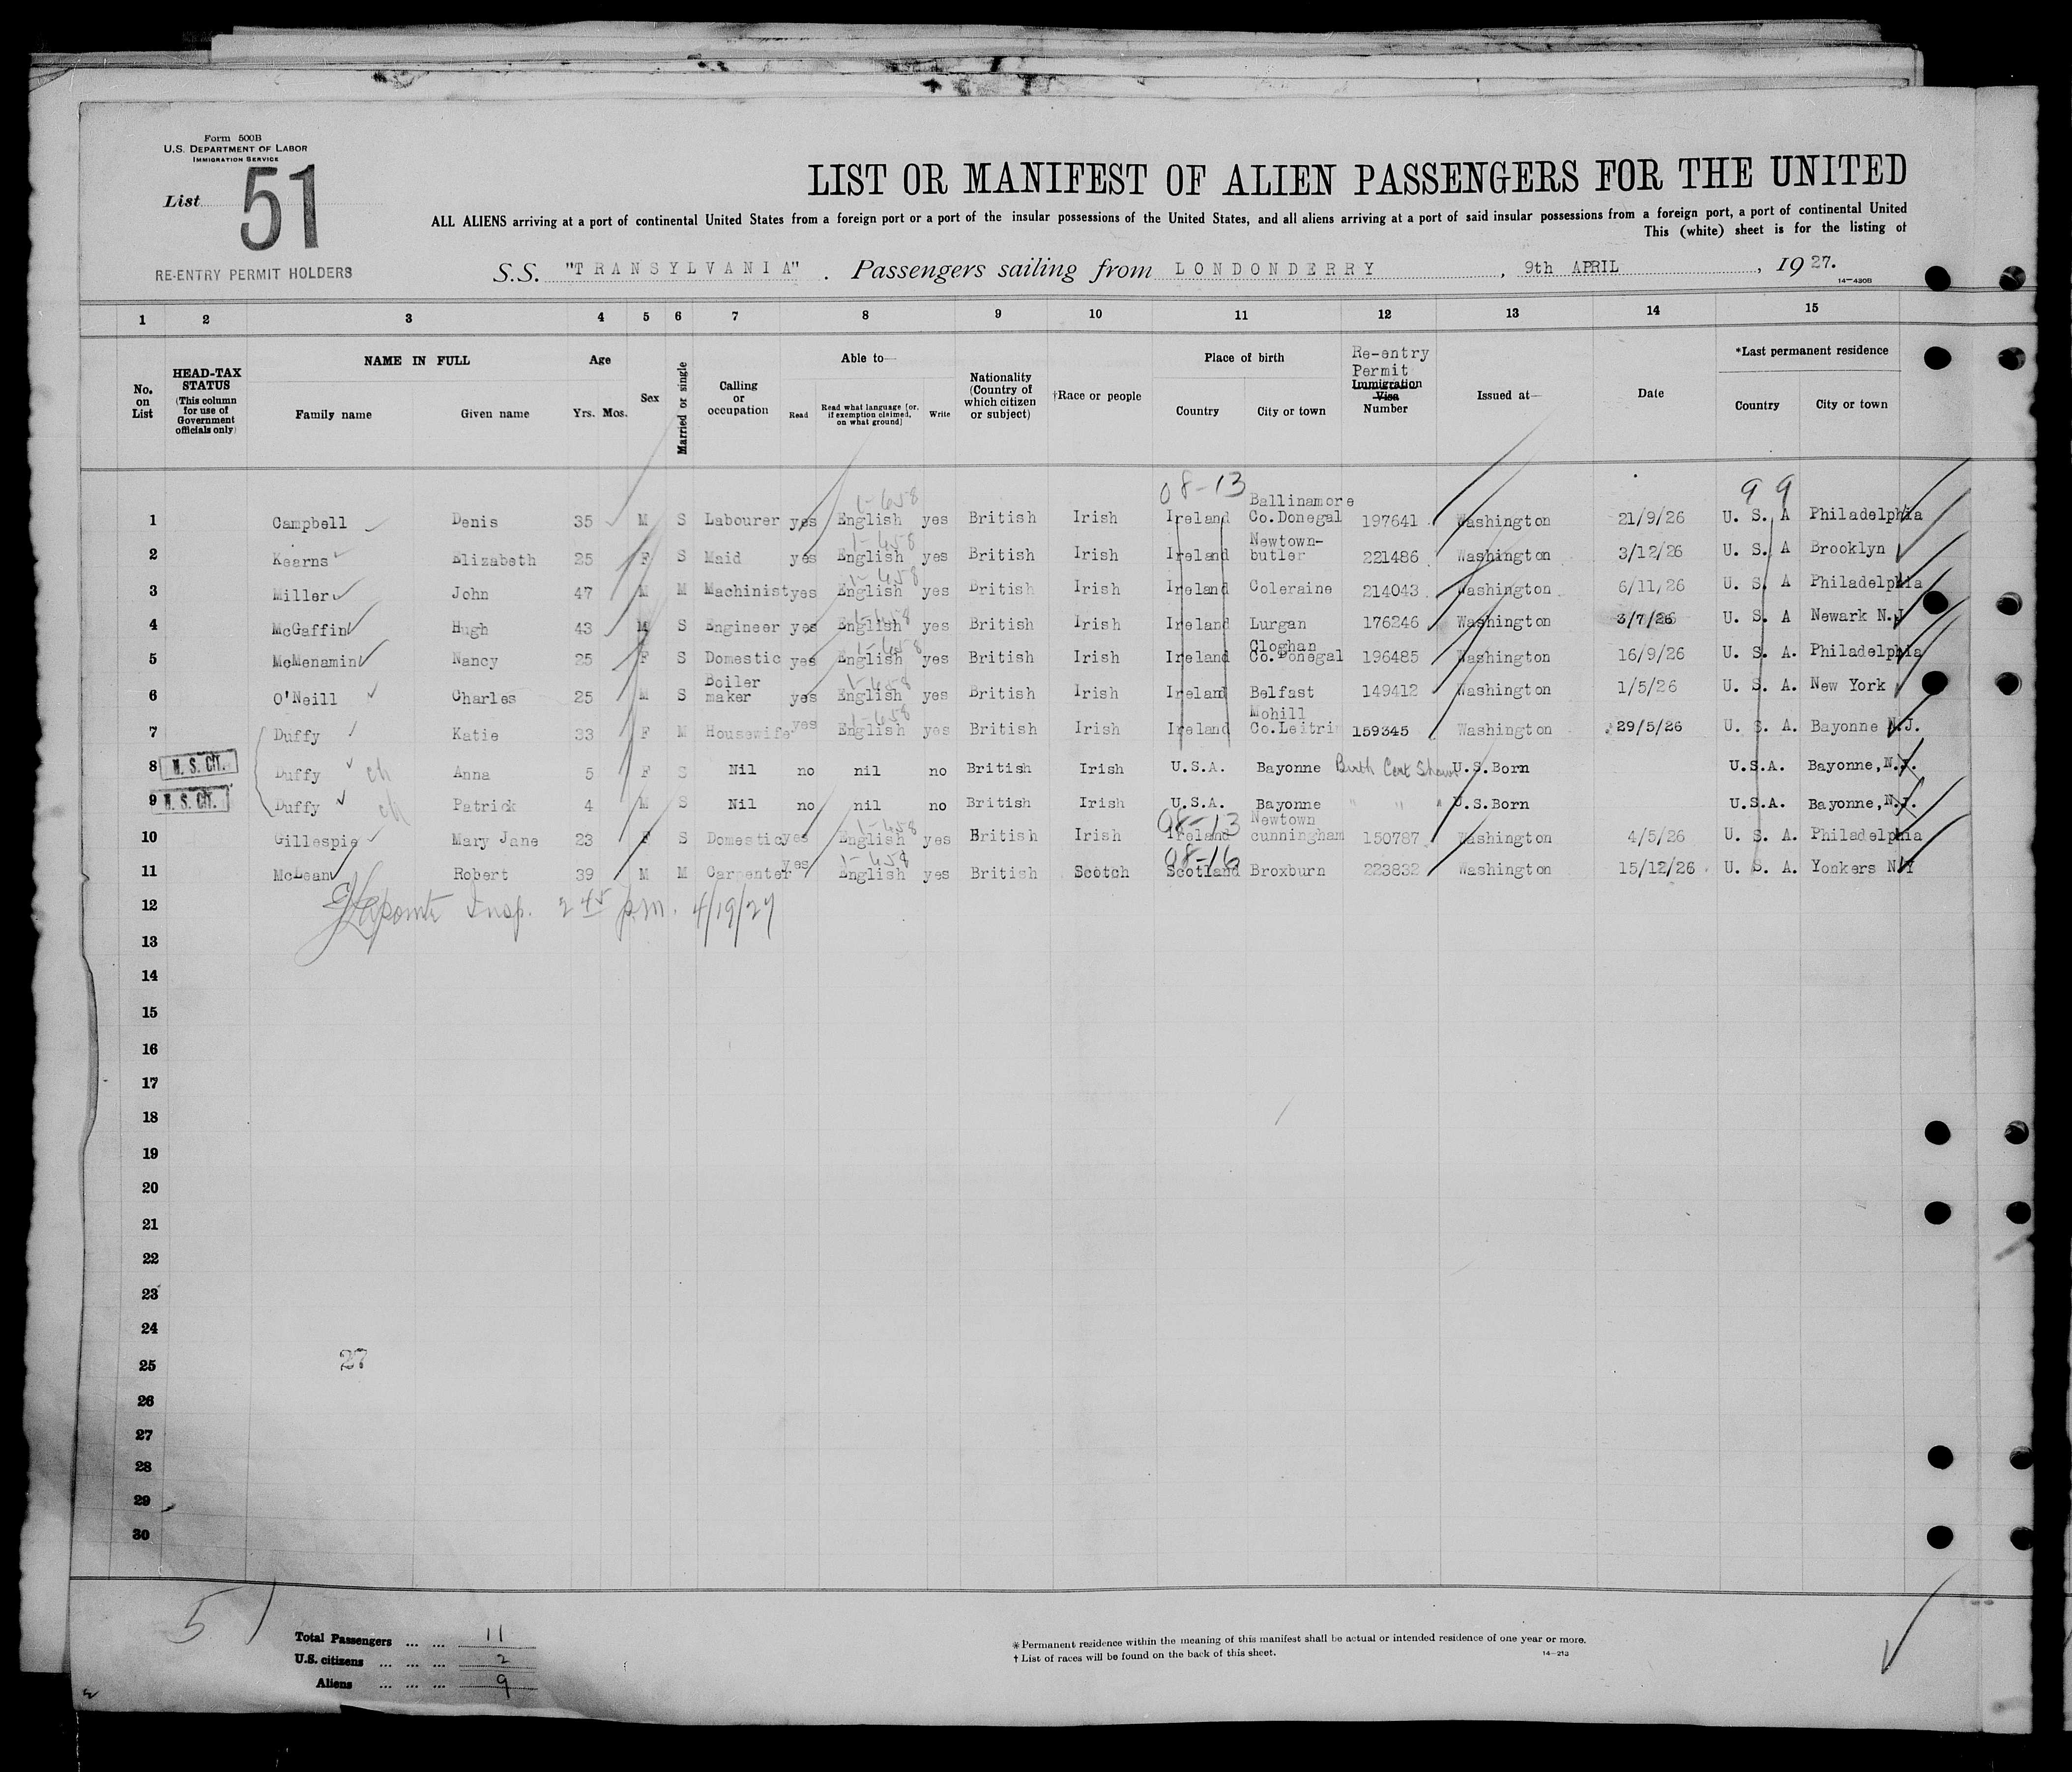 Form 500B
U.S. DEPARTMENT OF LABOR
IMMIGRATION SERVICE
List 51
RE-ENTRY PERMIT HOLDERS
LIST OR MANIFEST OF ALIEN PASSENGERS FOR THE UNITED
ALL ALIENS arriving at a port of continental United States from a foreign port or a port of the insular possessions of the United States, and all aliens arriving at a port of said insular possessions from a foreign port, a port of continental United
This (white) sheet is for the listing of
S.S. "TRANSYLVANIA". Passengers sailing from LONDONDERRY, 9th APRIL, 1927.
14-430B
1 2 3 4 5 6 7 8 9 10 11 12 13 14 15
No. on List
HEAD-TAX STATUS (This column for use of Government officials only)
NAME IN FULL
Family name Given name
Age
Yrs. Mos.
Sex
Married or single
Calling or occupation
Able to—
Read Read what language [or, if exemption claimed, on what ground] Write
Nationality (Country of which citizen or subject)
†Race or people
Place of birth
Country City or town
Re-entry Permit
Immigration Visa Number
Issued at—
Date
*Last permanent residence
Country City or town
08-13 99
1 Campbell Denis 35 M S Labourer yes English 1-658 yes British Irish Ireland Ballinamore Co.Donegal 197641 Washington 21/9/26 U. S. A Philadelphia
2 Kearns Elizabeth 25 F S Maid yes English 1-658 yes British Irish Ireland Newtown-butler 221486 Washington 3/12/26 U. S. A Brooklyn
3 Miller John 47 M M Machinist yes English 1-658 yes British Irish Ireland Coleraine 214043 Washington 6/11/26 U. S. A Philadelphia
4 McGaffin Hugh 43 M S Engineer yes English 1-658 yes British Irish Ireland Lurgan 176246 Washington 3/7/26 U. S. A Newark N.J
5 McMenamin Nancy 25 F S Domestic yes English 1-658 yes British Irish Ireland Cloghan Co.Donegal 196485 Washington 16/9/26 U. S. A. Philadelphia
6 O'Neill Charles 25 M S Boiler maker yes English 1-658 yes British Irish Ireland Belfast 149412 Washington 1/5/26 U. S. A. New York
7 Duffy Katie 33 F M Housewife yes English 1-658 yes British Irish Ireland Mohill Co.Leitri 159345 Washington 29/5/26 U. S. A. Bayonne N.J.
8 U. S. CIT. Duffy ch Anna 5 F S Nil no nil no British Irish U.S.A. Bayonne Birth Cert Shown U.S.Born U.S.A. Bayonne, N.J.
9 U. S. CIT. Duffy ch Patrick 4 M S Nil no nil no British Irish U.S.A. Bayonne " " " U.S.Born U.S.A. Bayonne, N.J.
08-13
10 Gillespie Mary Jane 23 F S Domestic yes English 1-658 yes British Irish Ireland Newtown cunningham 150787 Washington 4/5/26 U. S. A. Philadelphia
08-16
11 McLean Robert 39 M M Carpenter yes English 1-658 yes British Scotch Scotland Broxburn 223832 Washington 15/12/26 U. S. A. Yonkers N.Y
12 Insp. 2 45 p.m. 4/19/27
13
14
15
16
17
18
19
20
21
22
23
24
25 27
26
27
28
29
30
51
Total Passengers ... ... 11
U.S. citizens ... ... ... 2
Aliens ... ... ... 9
* Permanent residence within the meaning of this manifest shall be actual or intended residence of one year or more.
† List of races will be found on the back of this sheet.
14-213